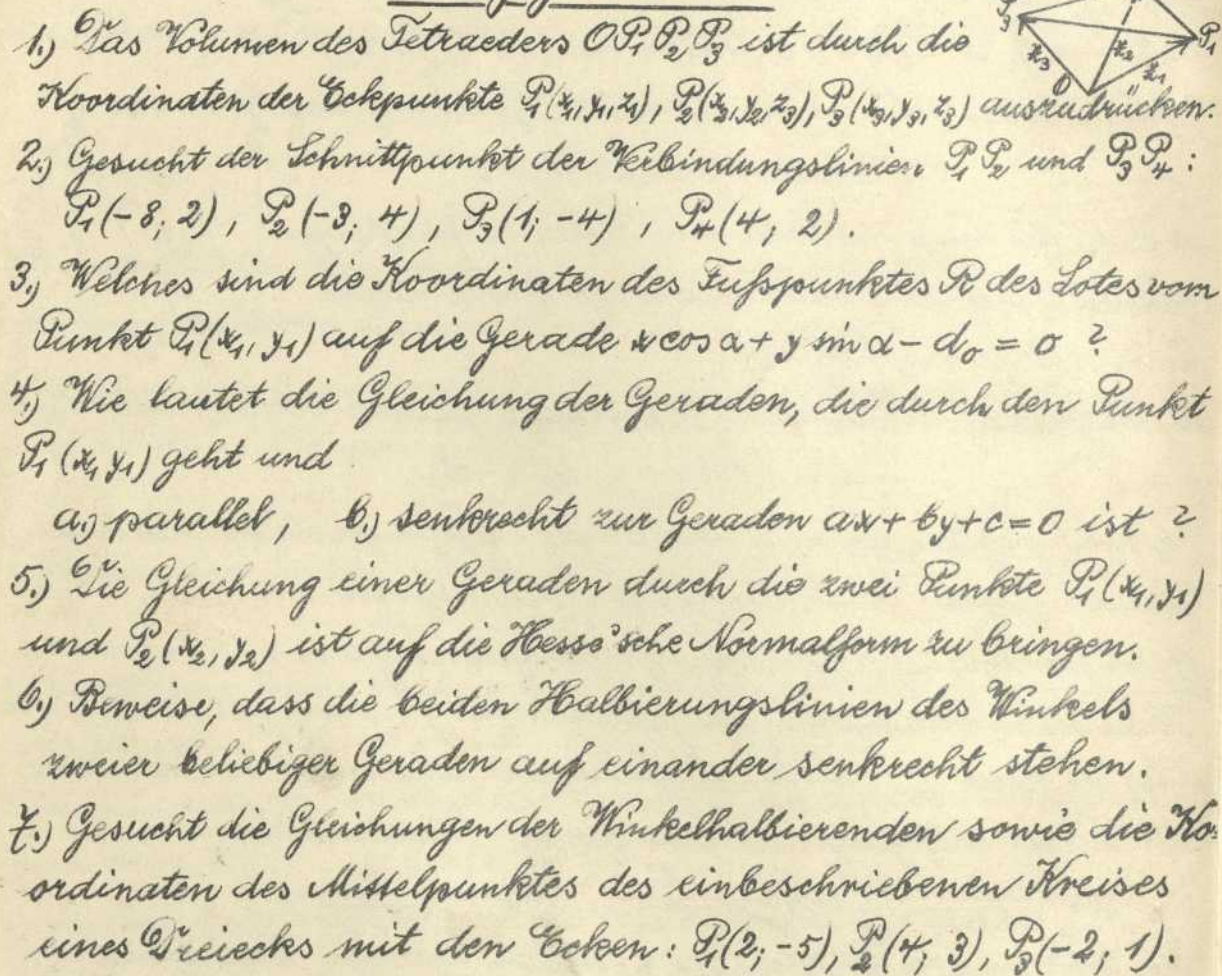 1.) Das Volumen des Tetraeders OP₁P₂P₃ ist durch die
Koordinaten der Eckpunkte P₁(x₁,y₁,z₁), P₂(x₂,y₂,z₃), P₃(x₃,y₃,z₃) auszudrücken.
P₃
P₁
r₃
r₂
r₁
O
2.) Gesucht der Schnittpunkt der Verbindungslinien P₁P₂ und P₃P₄ :
P₁(-8; 2) , P₂(-3; 4) , P₃(1; -4) , P₄(4; 2).
3.) Welches sind die Koordinaten des Fußpunktes R des Lotes vom
Punkt P₁(x₁, y₁) auf die Gerade x cos α + y sin α - d₀ = 0 ?
4.) Wie lautet die Gleichung der Geraden, die durch den Punkt
P₁ (x₁ y₁) geht und
a.) parallel, b.) senkrecht zur Geraden ax + by + c = 0 ist ?
5.) Die Gleichung einer Geraden durch die zwei Punkte P₁(x₁, y₁)
und P₂(x₂, y₂) ist auf die Hesse'sche Normalform zu bringen.
6.) Beweise, dass die beiden Halbierungslinien des Winkels
zweier beliebiger Geraden auf einander senkrecht stehen.
7.) Gesucht die Gleichungen der Winkelhalbierenden sowie die Ko-
ordinaten des Mittelpunktes des einbeschriebenen Kreises
eines Dreiecks mit den Ecken: P₁(2; -5), P₂(4; 3), P₃(-2; 1).